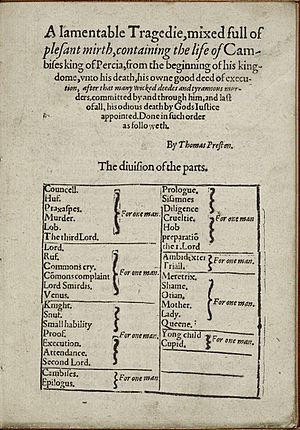 A lamentable Tragedie, mixed full of
plesant mirth, containing the life of Cam-
bises king of Percia, from the beginning of his king-
dome, vnto his death, his owne good deed of execu-
tion, after that many wicked deedes and tyrannous mur-
ders, committed by and through him, and last
of all, his odious death by Gods Iustice
appointed. Done in such order
as followeth.
By Thomas Preston.
The diuision of the parts.
Councell.
Huf.
Praxaspes.
Murder.
Lob.
The third Lord.
For one man.
Lord.
Ruf.
Commons cry.
Comons complaint
Lord Smirdis.
Venus.
For one man.
Knight.
Snuf.
Small hability
Proof.
Execution.
Attendance.
Second Lord.
For one man.
Cambises.
Epilogus.
For one man.
Prologue.
Sisamnes
Diligence
Crueltie.
Hob
preparatiō
the 1. Lord
For one man
Ambidexter
Triall.
For one man.
Meretrix.
Shame.
Otian.
Mother.
Lady.
Queene.
For one man.
Yong child
Cupid.
For one man.